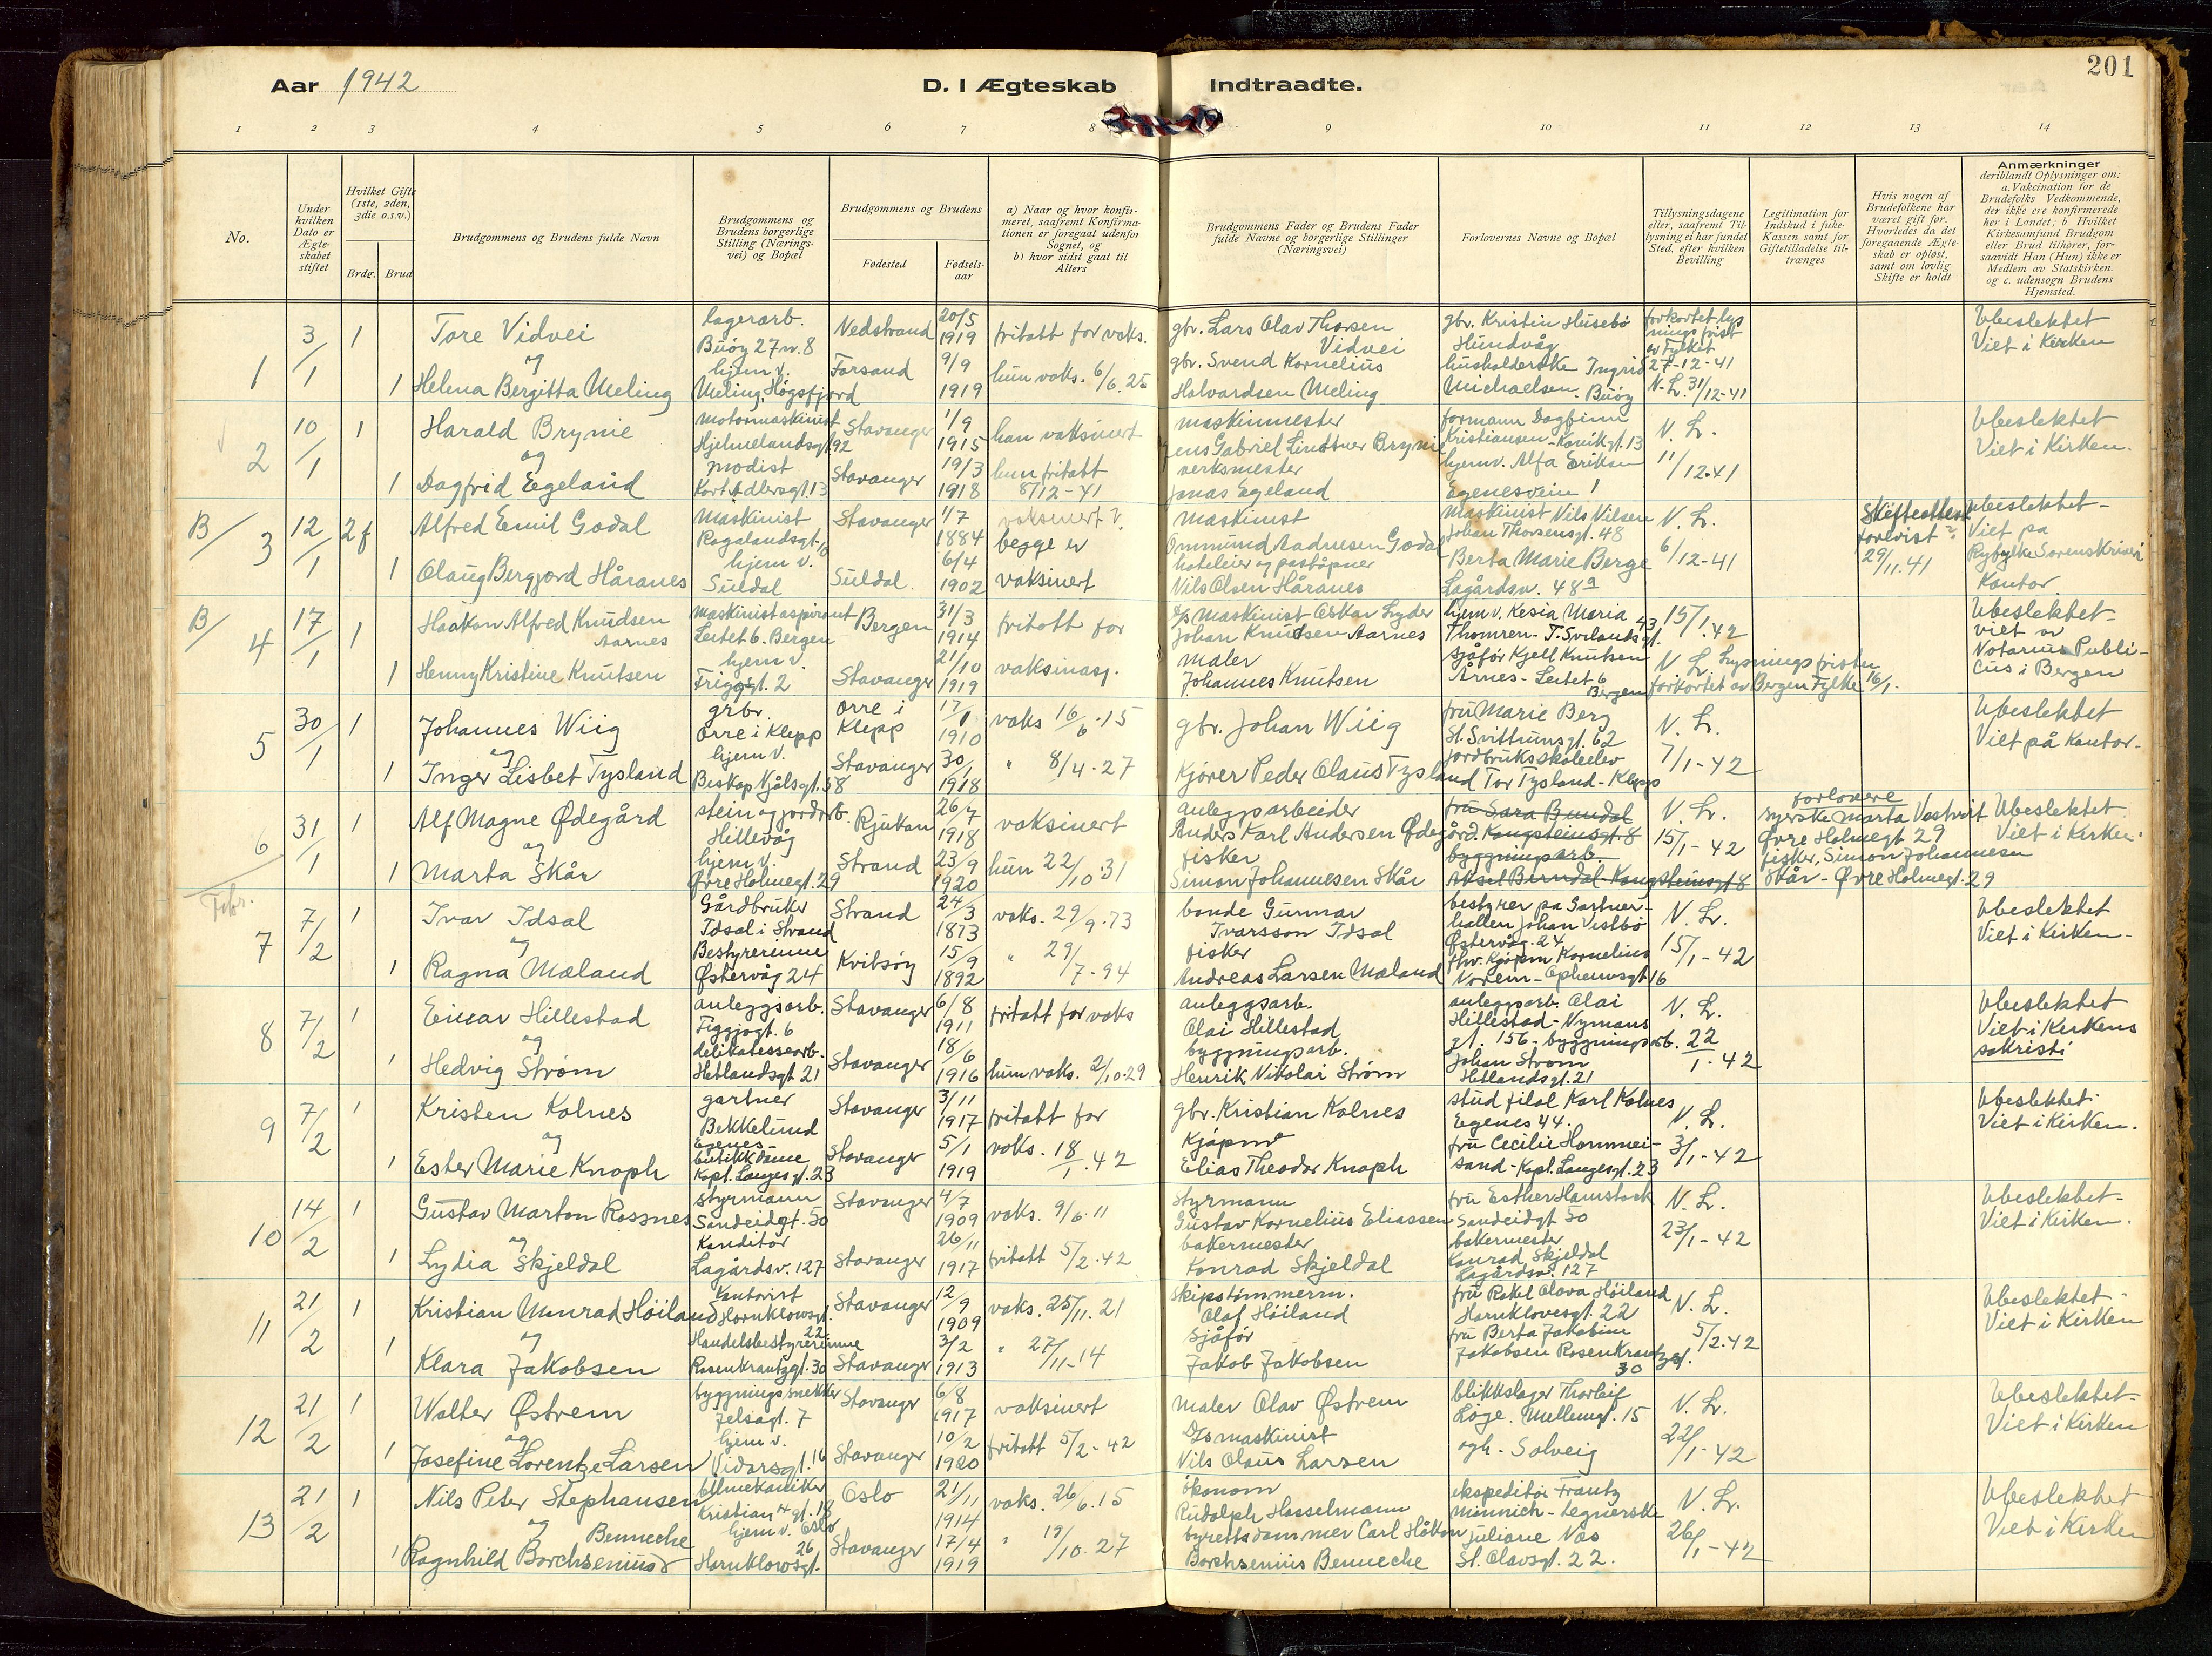 201
Aar 1942
D. I Ægteskab Indtraadte.
1 2 3 4 5 6 7 8 9 10 11 12 13 14
No.
Under hvilken Dato er Ægteskabet stiftet
Hvilket Gifte (1ste, 2den, 3die o.s.v.)
Brdg. Brud
Brudgommens og Brudens fulde Navn
Brudgommens og Brudens borgerlige Stilling (Næringsvei) og Bopæl
Brudgommens og Brudens
Fødested
Fødselsaar
a) Naar og hvor konfirmeret, saafremt Konfirmationen er foregaat udenfor Sognet, og
b) hvor sidst gaat til Alters
Brudgommens Fader og Brudens Fader fulde Navne og borgerlige Stillinger (Næringsvei)
Forlovernes Navne og Bopæl
Tillysningsdagene eller, saafremt Tillysning ei har fundet Sted, efter hvilken Bevilling
Legitimation for Indskud i fuke-Kassen samt for Giftetilladelse tiltrænges
Hvis nogen af Brudefolkene har været gift før. Hvorledes da det foregaaende Ægteskab er opløst, samt om lovlig Skifte er holdt
Anmærkninger deriblandt Oplysninger om: a. Vakcination for de Brudefolks Vedkommende, der ikke ere konfirmerede her i Landet; b Hvilket Kirkesamfund Brudgom eller Brud tilhører, forsaavidt Han (Hun) ikke er Medlem av Statskirken. og c. udensogn Brudens Hjemsted.
1
3/1 1 Tore Vidvei lagerarb. Buøy 27 n. 8 Nedstrand 20/5 1919 fritatt for vaks. gbr. Lars Olav Thorsen Vidvei gbr. Kristin Husebø Hundvåg forkortet lysningsfrist av Fylket 27-12-41 Ubeslektet Viet i Kirken
og
1 Helena Bergitta Meling hjem v. Meling, Høgsfjord Forsand 9/9 1919 hun vaks. 6/6.25 gbr. Svend Kornelius Halvardsen Meling husholderske Ingrid Michaelsen - Buøy N. L. 31/12-41
2
10/1 1 Harald Brynie Motormaskinist Hjelmelandsgt 92 Stavanger 1/9 1915 han vaksinert maskinmester Jens Gabriel Lindtner Brynie formann Dagfinn Kristiansen - Kanikgt. 13 N. L. Ubeslektet Viet i Kirken.
og
1 Dagfrid Egeland modist Kort Adlersgt. 13 Stavanger 19/3 1918 hun fritatt 8/12-41 verksmester Jonas Egeland hjemv. Alfa Eriksen Egenesvein 1 11/12-41
B/ 3
12/1 2f Alfred Emil Godal Maskinist Rogalandsgt. 10 Stavanger 1/7 1884 vaksinert v. maskinist Ommund Aadnesen Godal Maskinist Nils Nilsen Johan Thorsensgt. 48 N. L. Skifteattest forevist 29/11.41 Ubeslektet - Viet pa Ryfylke Sorenskriveri Kontor
1 Olaug Bergjord Håranes hjem v. Suldal Suldal 6/4 1902 begge er vaksinert hoteleier og poståpner Nils Olsen Håranes Berta Marie Berge Lagårdsv. 48a 6/12-41
B/ 4
17/1 1 Haakon Alfred Knudsen Aarnes Maskinistaspirant Leitet 6. Bergen Bergen 31/3 1914 fritatt for D/s Maskinist Oskar Lyder Johan Knudsen Aarnes hjem v. Kesia Maria Thomren - T. Svilandsgt. 43 15/1.42 Ubeslektet - viet av Notarius Publicus i Bergen
1 Henny Kristine Knutsen hjem v. Friggsgt. 2 Stavanger 21/10 1919 vaksinasj. Maler Johannes Knutsen Sjåfør Kjell Knutsen Årnes - Leitet 6 Bergen N. L. Lysningsfristen forkortet av Bergen Fylke 16/1.
5
30/1 1 Johannes Wiig grbr. Orre i Klepp Orre i Klepp 17/1 1910 vaks 16/6.15 gbr. Johan Wiig fru Marie Berg St. Svithunsgt. 62 N. L. Ubeslektet Viet på Kontor.
og
1 Inger Lisbet Tysland hjem v. Biskop Njålsgt. 58 Stavanger 30/1 1918 " 8/4.27 Kjører Peder Olaus Tysland jordbruksskoleelev Tor Tysland - Klepp 7/1-42
6
31/1 1 Alf Magne Ødegård stein og jordarb. Hillevåg Rjukan 26/7 1918 vaksinert anleggsarbeider Anders Karl Andersen Ødegård. fru Sara Bundal Kongsteinsgt. 8 N. L. forlovere syerske Marta Vastveit Øvre Holmegt 29 Ubeslektet Viet i Kirken.
og
1 Marta Skår hjem v. Øvre Holmegt. 29 Strand 23/9 1920 hun 22/10.31 fisker Simon Johannesen Skår byggningsarb. Aksel Berndal Kongsteinsgt 8 15/1-42 fisker, Simon Johannesen Skår - Øvre Holmegt. 29
Febr.
7
7/2 1 Ivar Idsal Gårdbruker Idsal i Strand Strand 24/3 1873 vaks. 29/9.73 bonde Gunnar Ivarsson Idsal bestyrer pa Gartnerhallen Johan Vestbø Østervåg. 24 N. L. Ubeslektet Viet i Kirken -
og
1 Ragna Mæland Bestyrerinne Østervåg 24 Kvitsøy 15/9 1892 " 29/7.94 fisker Andreas Larsen Mæland fhv. Kjøpm Kornelius Norem - Ophemsgt 16 15/1-42
8
7/2 1 Einar Hillestad anleggsarb. Figgjogt. 6 Stavanger 6/8 1911 fritatt for vaks anleggsarb. Olai Hillestad anleggsarb. Olai Hillestad - Nymansgt. 156 - byggningsarb. N. L. Ubeslektet Viet i Kirkens sakristi
og
1 Hedvig Strøm delikatessearb. Hetlandsgt 21 Stavanger 18/6 1916 hun vaks. 2/10.29 byggningsarb. Henrik Nikolai Strøm Johan Strøm Hetlandsgt. 21 22/1.42
9
7/2 1 Kristen Kolnes gartner Bekkelund Egenes Stavanger 3/11 1917 fritatt for gbr. Kristian Kolnes stud filol Karl Kolnes Egenes 44. N. L. Ubeslektet - Viet i Kirken.
og
1 Ester Marie Knoph butikkdame Kapt. Langesgt. 23 Stavanger 5/1 1919 vaks. 18/1.42 Kjøpm Elias Theodor Knoph fru Cecilie Hommeisand - Kapt. Langesgt. 23 3/1-42
10
14/2 1 Gustav Marton Rossnes styrmann Sandeidgt. 50 Stavanger 4/7 1909 vaks. 9/6.11 styrmann Gustav Kornelius Eliassen fru Esther Hamstock Sandeidgt 50 N. L. Ubeslektet - Viet i Kirken.
og
1 Lydia Skjeldal Konditor Lagårdsv. 127 Stavanger 26/11 1917 fritatt 5/2.42 bakermester Konrad Skjeldal bakermester Konrad Skjeldal Lagårdsv. 127 23/1-42
11
21/2 1 Kristian Monrad Höiland Kontorist Hornklovesgt. 22 Stavanger 12/9 1909 vaks. 25/11.21 Skipstømmerm. Olaf Höiland fru Rakel Olava Höiland Hornklovesgt. 22 N. L. Ubeslektet - Viet i Kirken
og
1 Klara Jakobsen Handelsbestyrerinne Rosenkrantzgt. 30 Stavanger 3/2 1913 " 27/11-14 Sjåfør Jakob Jakobsen fru Berta Jakobine Jakobsen Rosenkrantzgt. 30 5/2.42
12
21/2 1 Walter Østrem byggningssnekker Jelsagt. 7 Stavanger 6/8 1917 vaksinert Maler Olav Østrem blikkslager Thorleif Loge. Mellemgt. 15 N. L. Ubeslektet - Viet i Kirken
og
1 Josefine Lorentze Larsen hjem v. Vidarsgt. 16 Stavanger 10/2 1920 fritatt 5/2-42 D/s maskinist Nils Olaus Larsen og h. Solveig 22/1-42
13
21/2 1 Nils Peter Stephansen bilmekaniker Kristian 4 gt. 18 Oslo Oslo 21/11 1914 vaks. 26/6.15 økonom Rudolph Hasselmann ekspeditør Frantz Minnich - tegnerske N. L. Ubeslektet Viet i Kirken
og Benneche
1 Ragnhild Borchsenius hjem v. Hornklovsgt. 26 Stavanger 17/4 1919 " 19/10.27 byrettsdommer Carl Håkon Borchsenius Benneche Juliane Næs St. Olavsgt. 22. 26/1-42